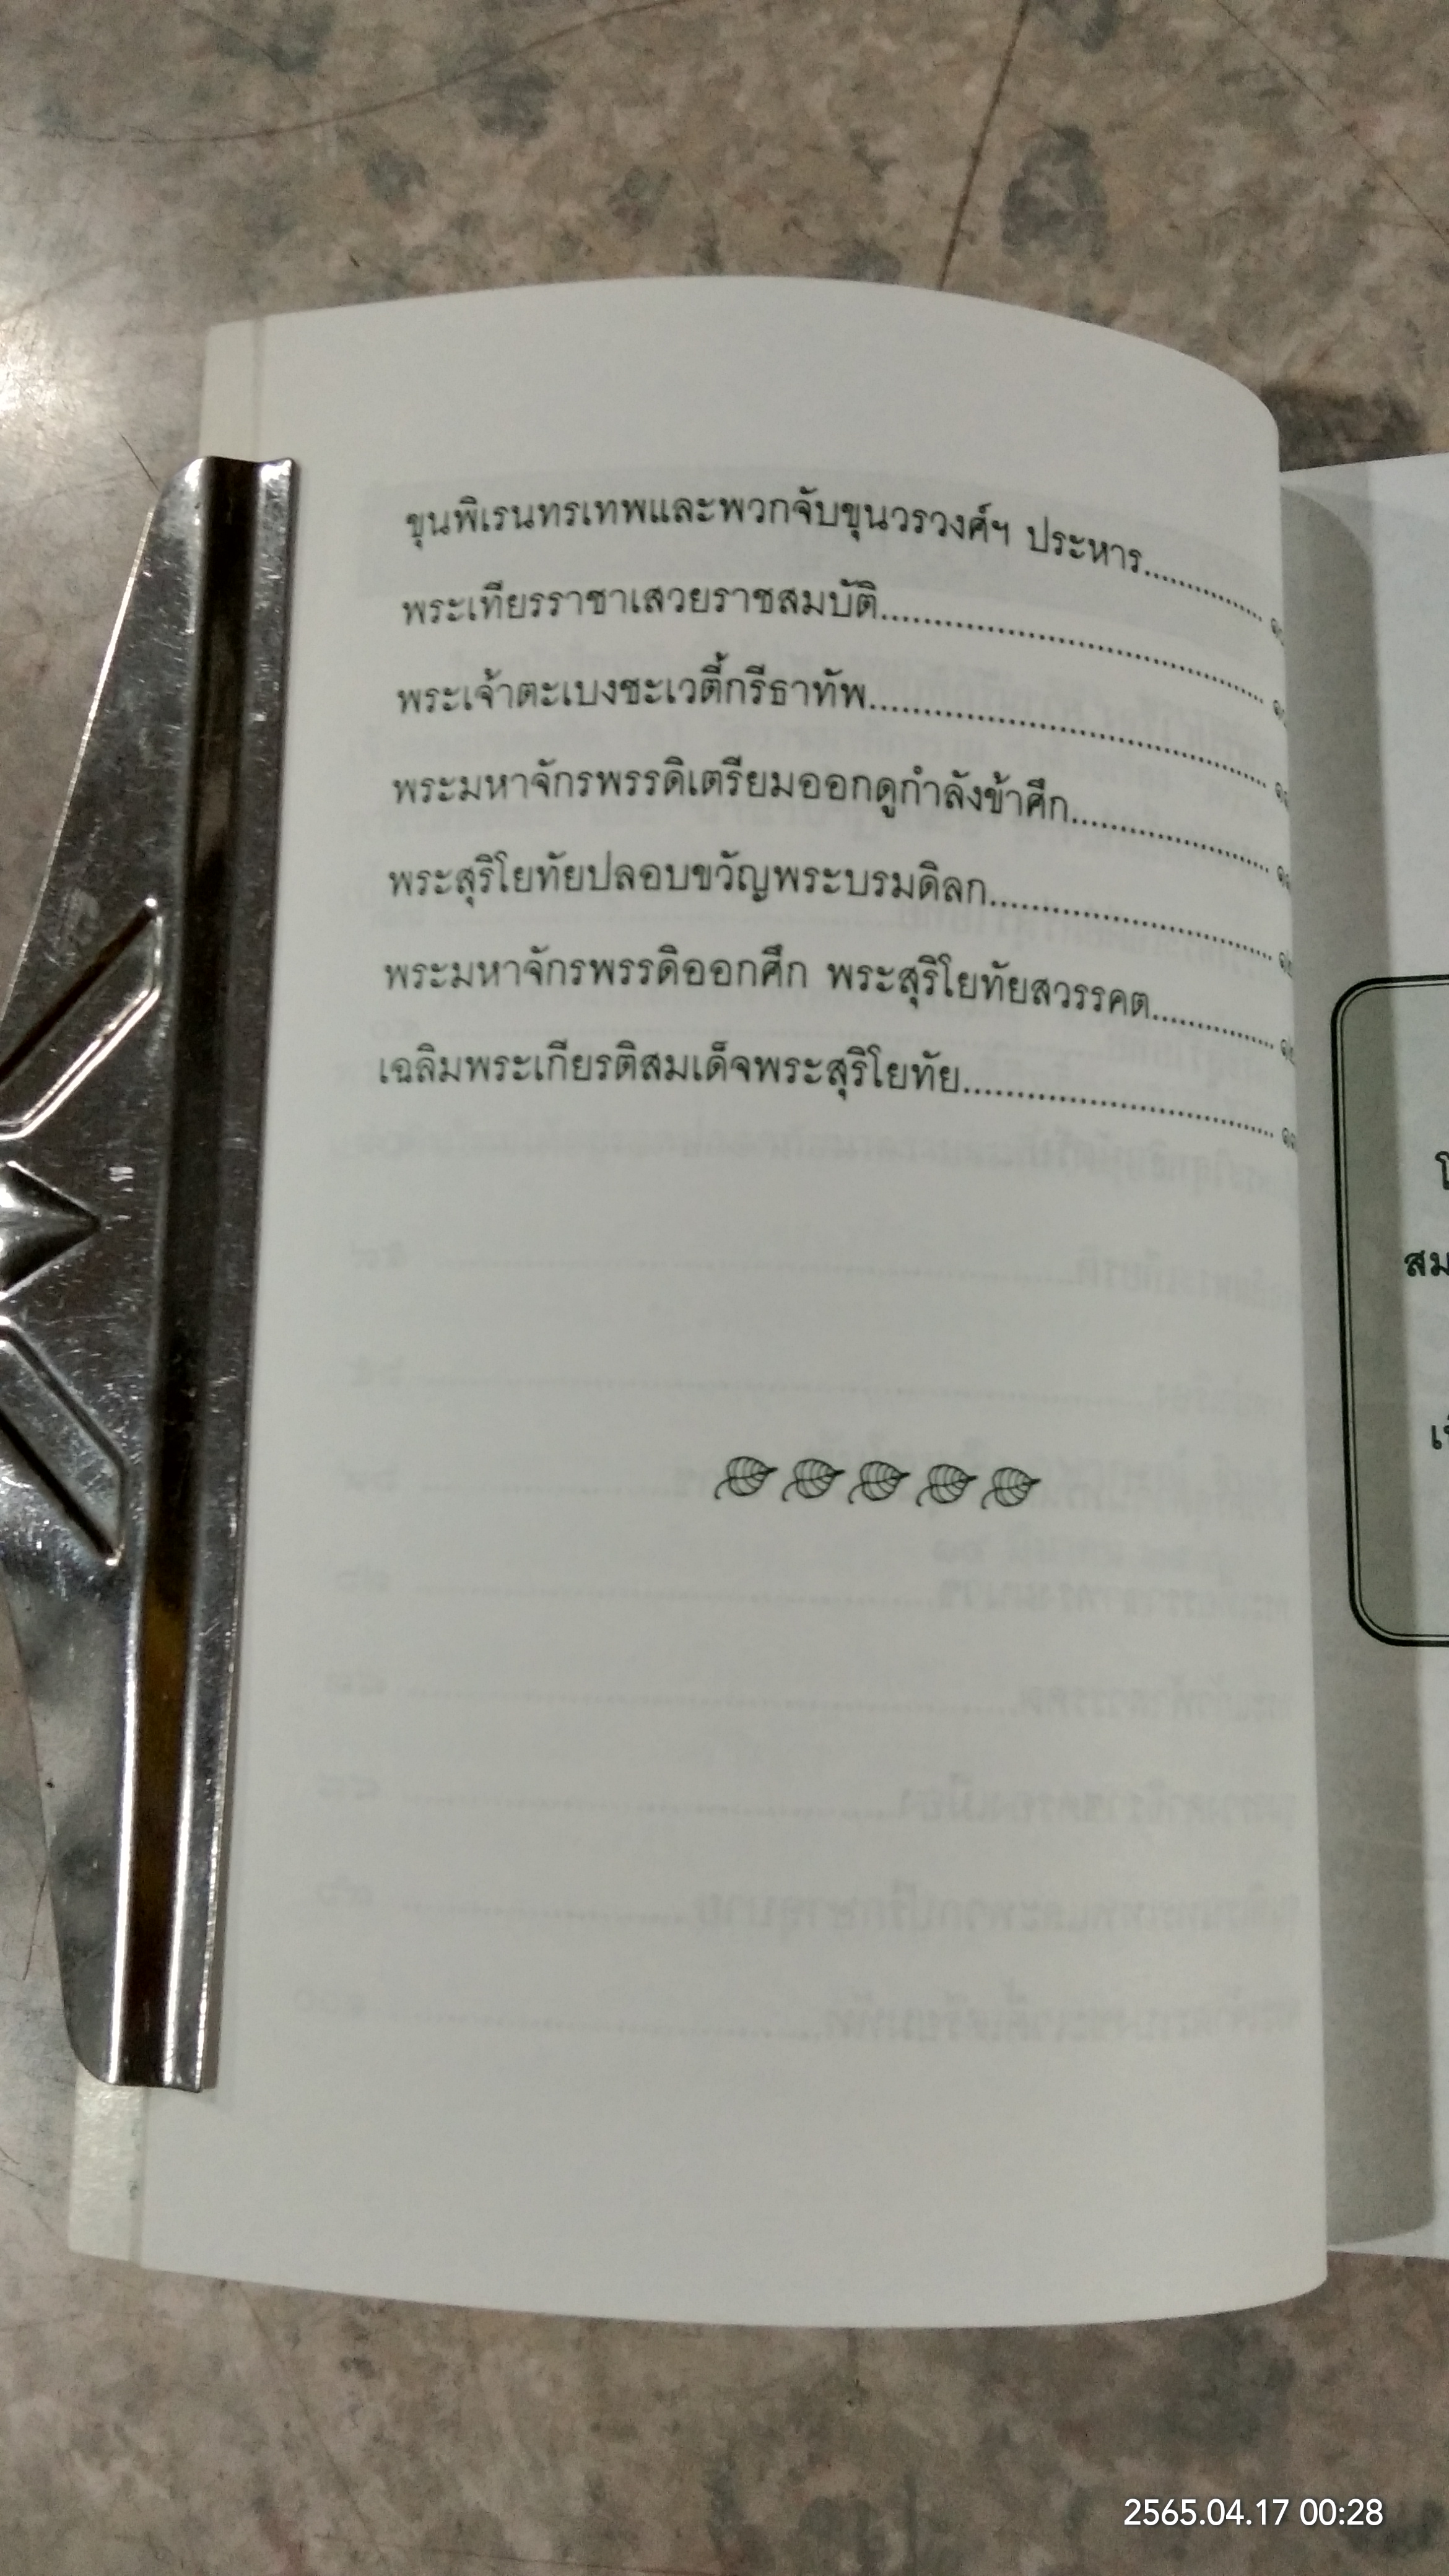 ขุนพิเรนทรเทพและพวกจับขุนวรวงศ์ฯ ประหาร
พระเทียรราชาเสวยราชสมบัติ
พระเจ้าตะเบงชะเวตี้กรีธาทัพ
พระมหาจักรพรรดิเตรียมออกดูกำลังข้าศึก
พระสุริโยทัยปลอบขวัญพระบรมดิลก
พระมหาจักรพรรดิออกศึก พระสุริโยทัยสวรรคต
เฉลิมพระเกียรติสมเด็จพระสุริโยทัย
2565.04.17 00:28